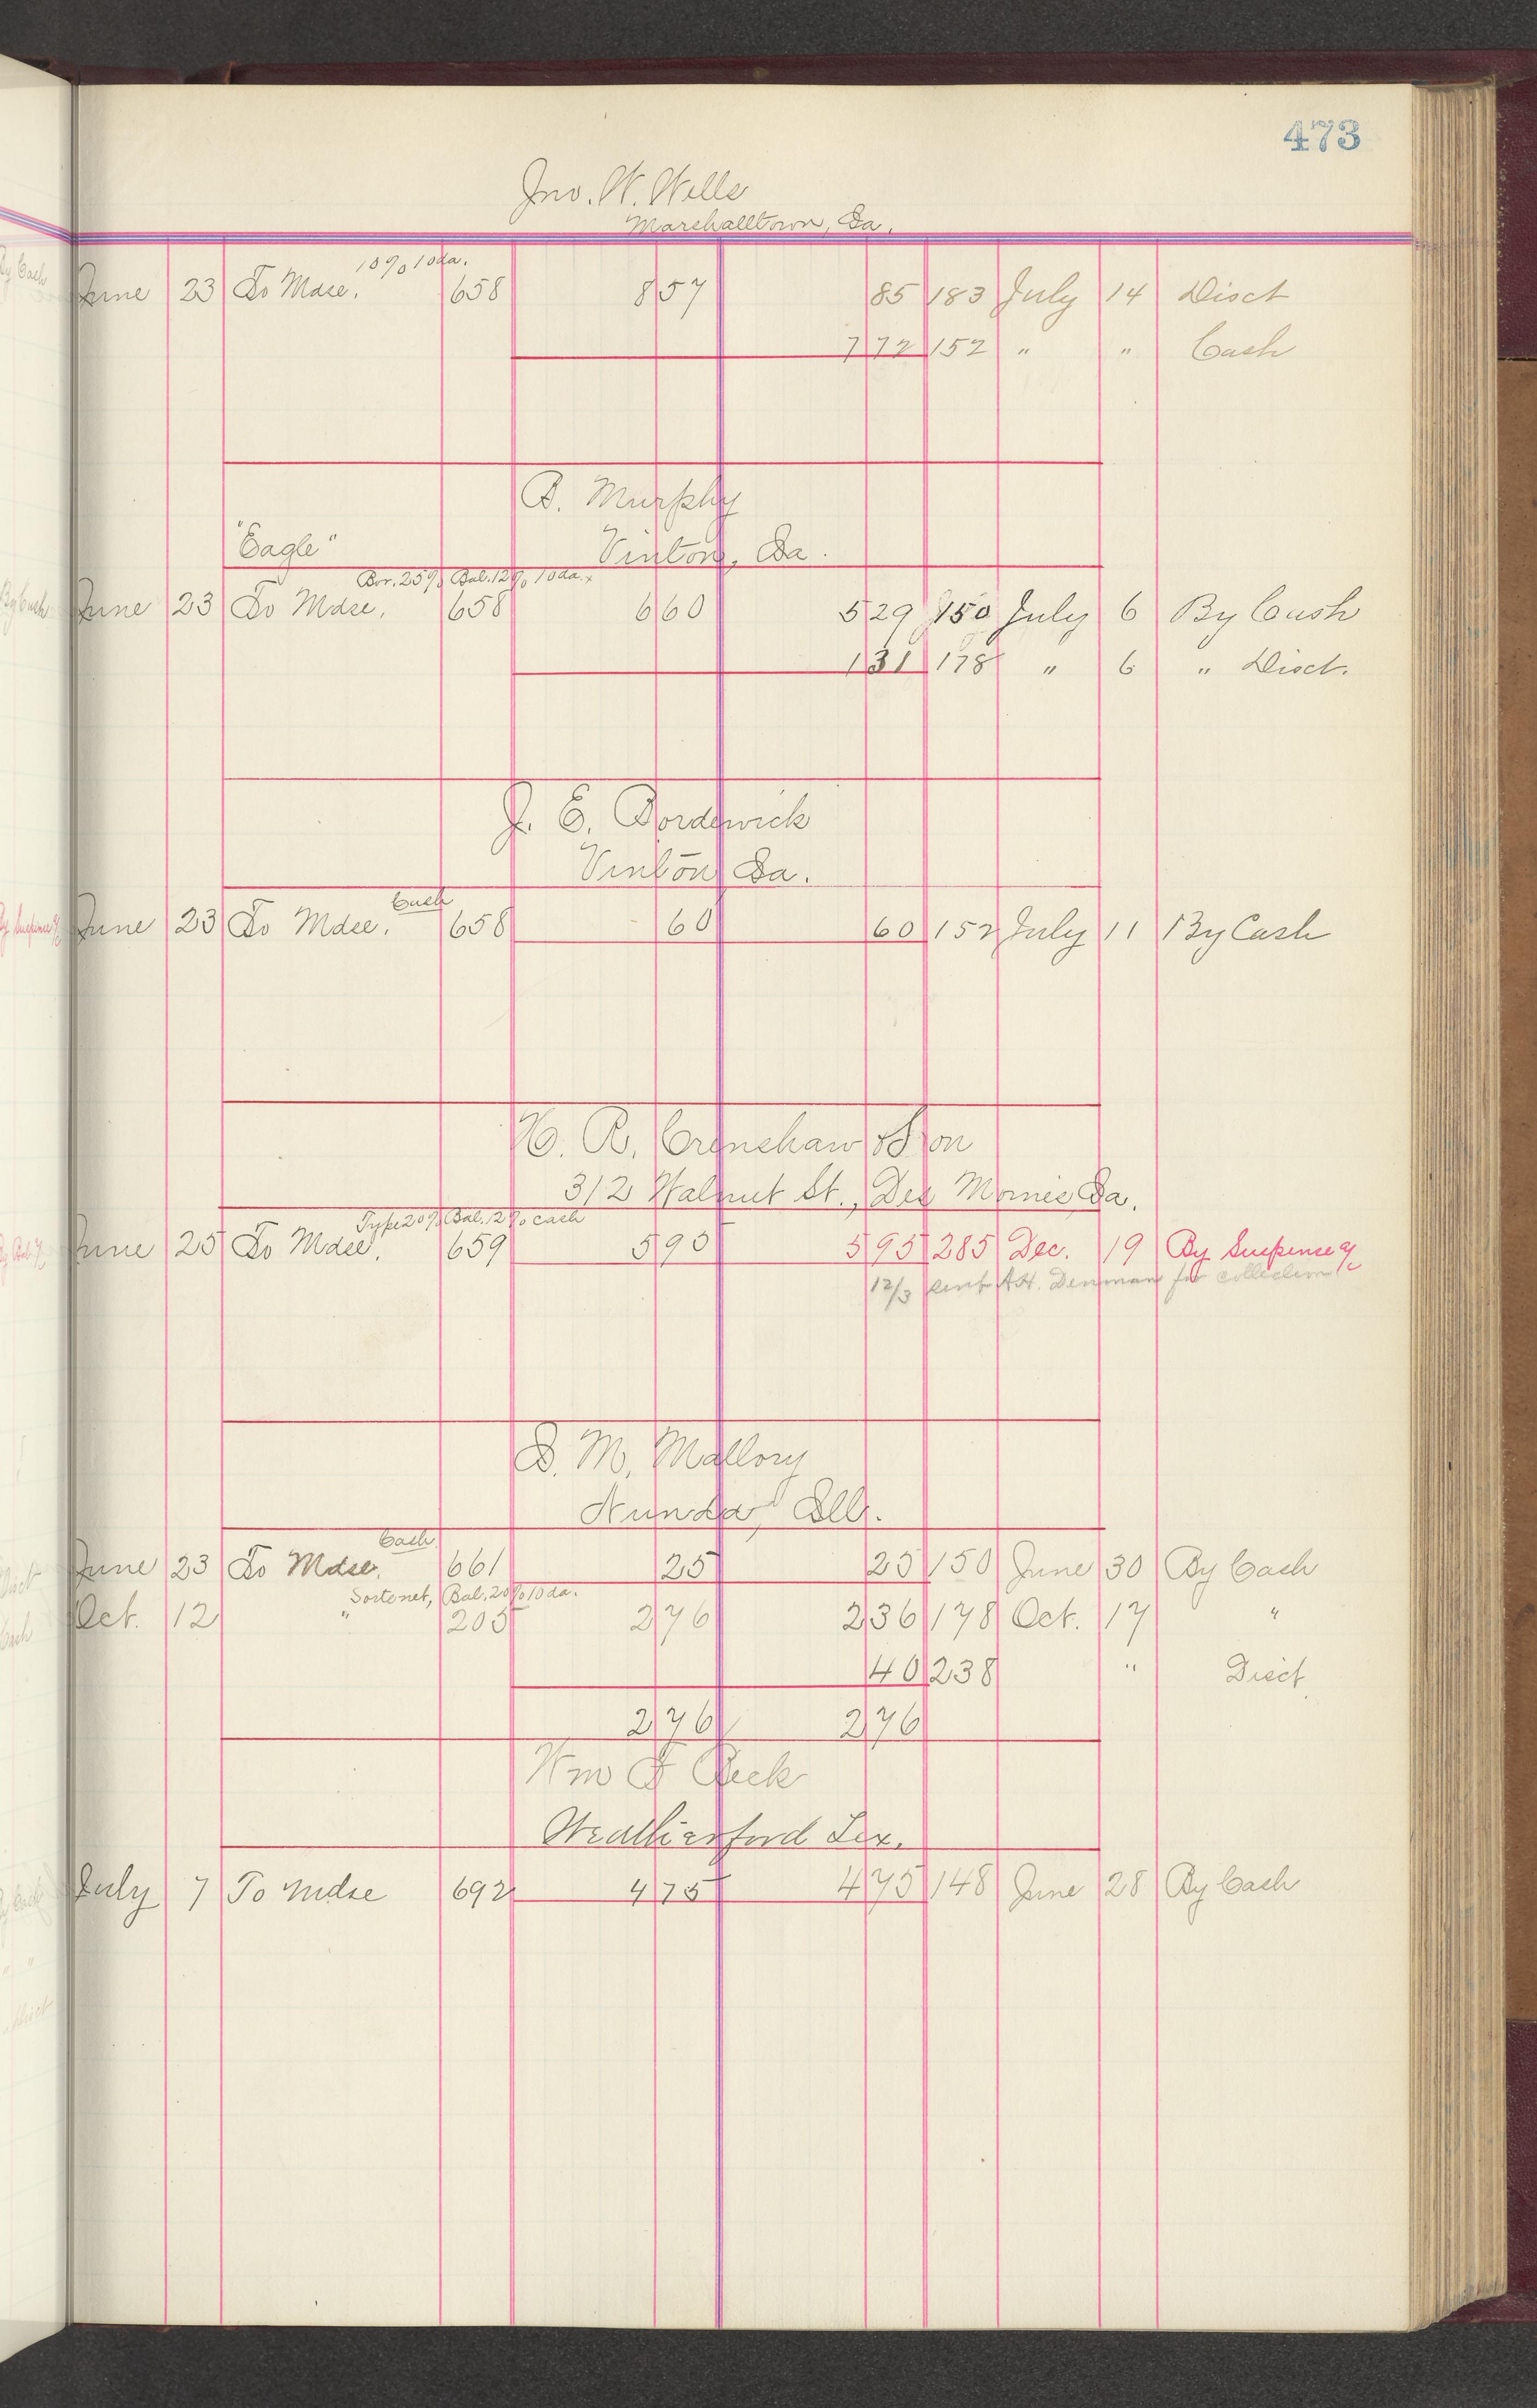 473
Jno. W. Wells
Marshalltown, Ia.
10% 10 da.
June 23 To Mdse. 658 8 57 85 183 July 14 Disct
7 72 152 " " Cash
B. Murphy
"Eagle" Vinton, Ia.
Bor. 25% Bal. 12% 10 da.
June 23 To Mdse. 658 6 60 5 29 150 July 6 By Cash
1 31 178 " 6 " Disct.
J. E. Bordewick
Vinton Ia.
Cash
June 23 To Mdse. 658 60 60 152 July 11 By Cash
H. R. Crenshaw & Son
312 Walnut St., Des Moines Ia.
Type 20% Bal. 12% Cash
June 25 To Mdse. 659 5 95 5 95 285 Dec. 19 By Suspense a/c
12/3 sent A.H. Denman for collection
D. M. Mallory
Nunda, Ills.
Cash
June 23 To Mdse. 661 25 25 150 June 30 By Cash
Sorts net, Bal. 20% 10 da.
Oct. 12 " 205 2 76 2 36 178 Oct. 17 "
40 238 " Disct
2 76 2 76
Wm F Beck
Weatherford Tex.
July 7 To Mdse 692 4 75 4 75 148 June 28 By Cash